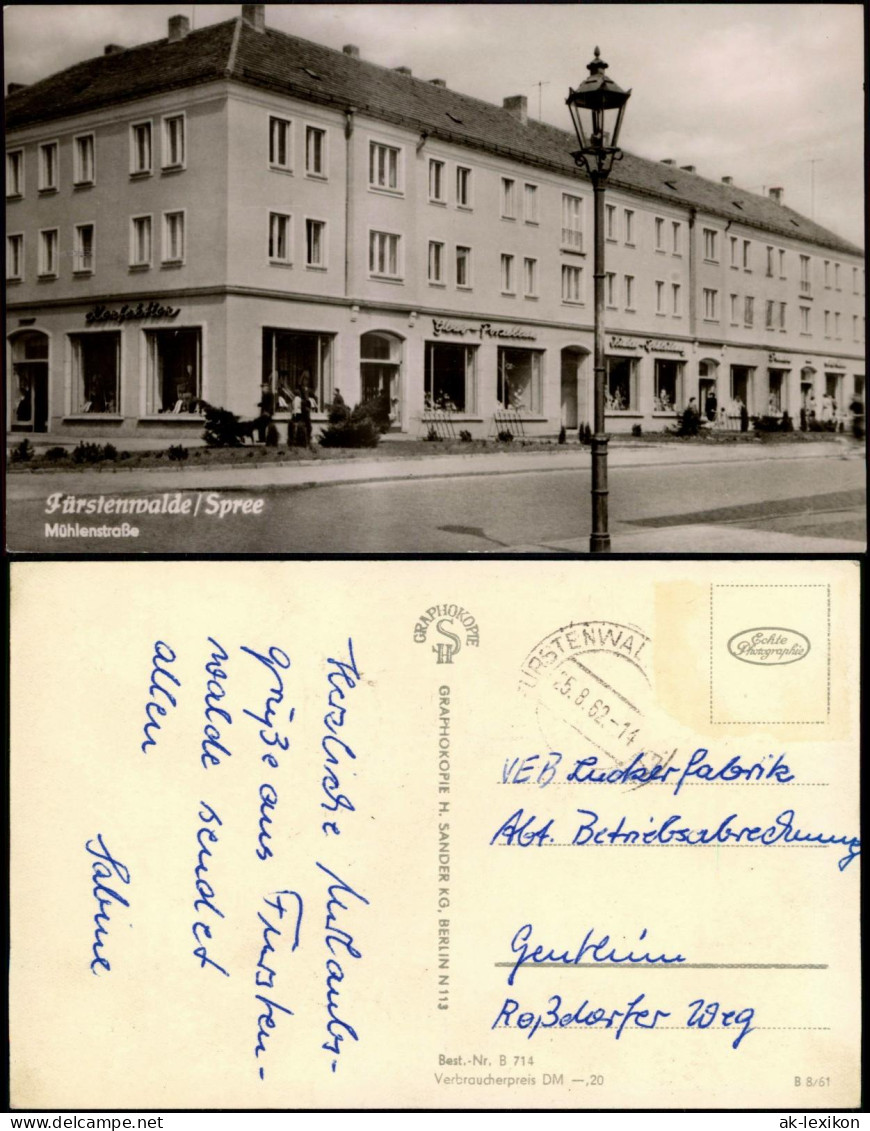 Konfektion
Glas-Porzellan
Fürstenwalde/Spree
Mühlenstraße
Herzliche Urlaubs-
grüße aus Fürsten-
walde sendet
allen
Sabine
GRAPHOKOPIE
SH
GRAPHOKOPIE H. SANDER KG, BERLIN N 113
FÜRSTENWAL
25.8.62.-14
Echte
Photographie
VEB Zuckerfabrik
Abt. Betriebsabrechnung
Genthin
Roßdorfer Weg
Best.-Nr. B 714
Verbraucherpreis DM —,20
B 8/61
ak-lexikon